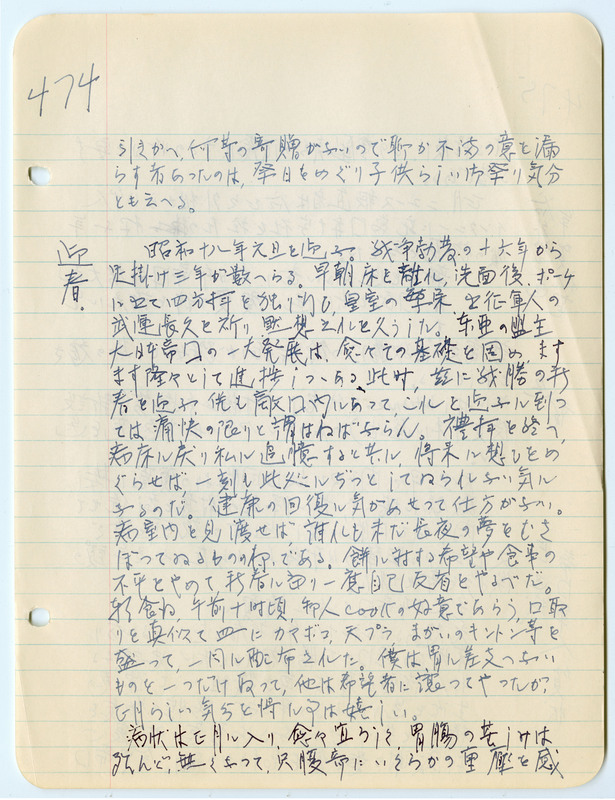 474
引きかへ、何等の寄贈がないので聊か不満の意を漏
らす者あったのは、祭日をめぐり子供らしい御祭り気分
とも云へる。
迎春。
昭和十八年元旦を迎ふ。戦争勃発の十六年から
足掛け三年が数へらる。早朝床を離れ、洗面後、ポーチ
に出て四方拝を独り行ひ、皇室の尊栄 出征軍人の
武運長久を祈り黙想これを久うした。東亜の盟主
大日本帝国の一大発展は、愈々その基礎を固め、ます
ます隆々として進捗しつゝある此時、茲に戦勝の新
春を迎ふ、然も敵国内にあって、これを迎ふるに到っ
ては痛快の限りと謂はねばならん。禮拝を終へ、
病床に戻り私に追憶すると共に、将来に想ひをめ
ぐらせば、一刻も此処にぢっとしてゐられない気に
なるのだ。健康の回復に気があせって仕方がない。
病室内を見渡せば、誰れも未だ長夜の夢をむさ
ぼってゐるものゝ如くである。餅に対する希望や食事の
不平をやめて新春に当り一應自己反省をやるべだ。
朝食ね、午前十時頃、邦人cookの好意であらう、口取
りを真似て皿にカマボコ、天プラ、まがいのキントン等を
盛って、一同に配布された。僕は胃に差支へない
ものを一つだけ取って、他は希望者に譲ってやったが、
正月らしい気分を得る事は嬉しい。
病状は正月に入り、愈々宜ろしく、胃腸の苦しみは
殆んど無くなって、只腹部にいくらかの重壓を感